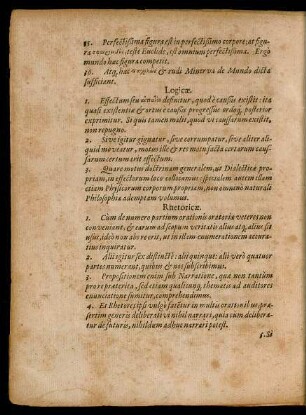 15. Perfectissima figura est in perfectissimo corpore: at figu-
ra teste Euclide, est omnium perfectissima. Ergo
mundo hæc figura competit.
16. Atq, hæc & rudi Minerva de Mundo dicta
sufficiant.
Logicæ.
1. Effectum seu definitur, quod è causis existit: ita
quasi existentiæ & ortus è causis progressus ordo, posterior
exprimitur. Si quis tamen malit, quod vi causarum existit,
non repugno.
2. Sive igitur gignatur, sive corrumpatur, sive aliter ali-
quid moveatur, motus ille & res motu facta certarum cau-
sarum certum erit effectum.
3. Quare motus doctrinam generalem, ut Dialecticæ pro-
priam, in effectorum loco collocamus: specialem autem illam
etiam Physicorum corporum propriam, non omnino naturali
Philosophiæ ademptam volumus.
Rhetoricæ.
1. Cum de numero partium orationis oratoriæ veteres non
conveniant, & earum ad scopum veritatis alius atq, alius sit
usus, ideò non abs re erit, ut in illam enumerationem accura-
tius inquiratur.
2. Alii igitur sex distinctè: alii quinque: alii verò quatuor
partes numerant, quibus & nos subscribimus.
3. Propositionem enim sub Narratione, qua non tantùm
pro re præterita, sed etiam qualitatis, thematis ad auditores
enunciatione sumitur, comprehendimus.
4. Et Rhetores ipsi vulgò fatentur in multis orationibus, præ-
sertim generis deliberativi nihil narrari, quia cum delibera-
tur de futuris, nihildum adhuc narrari potest.